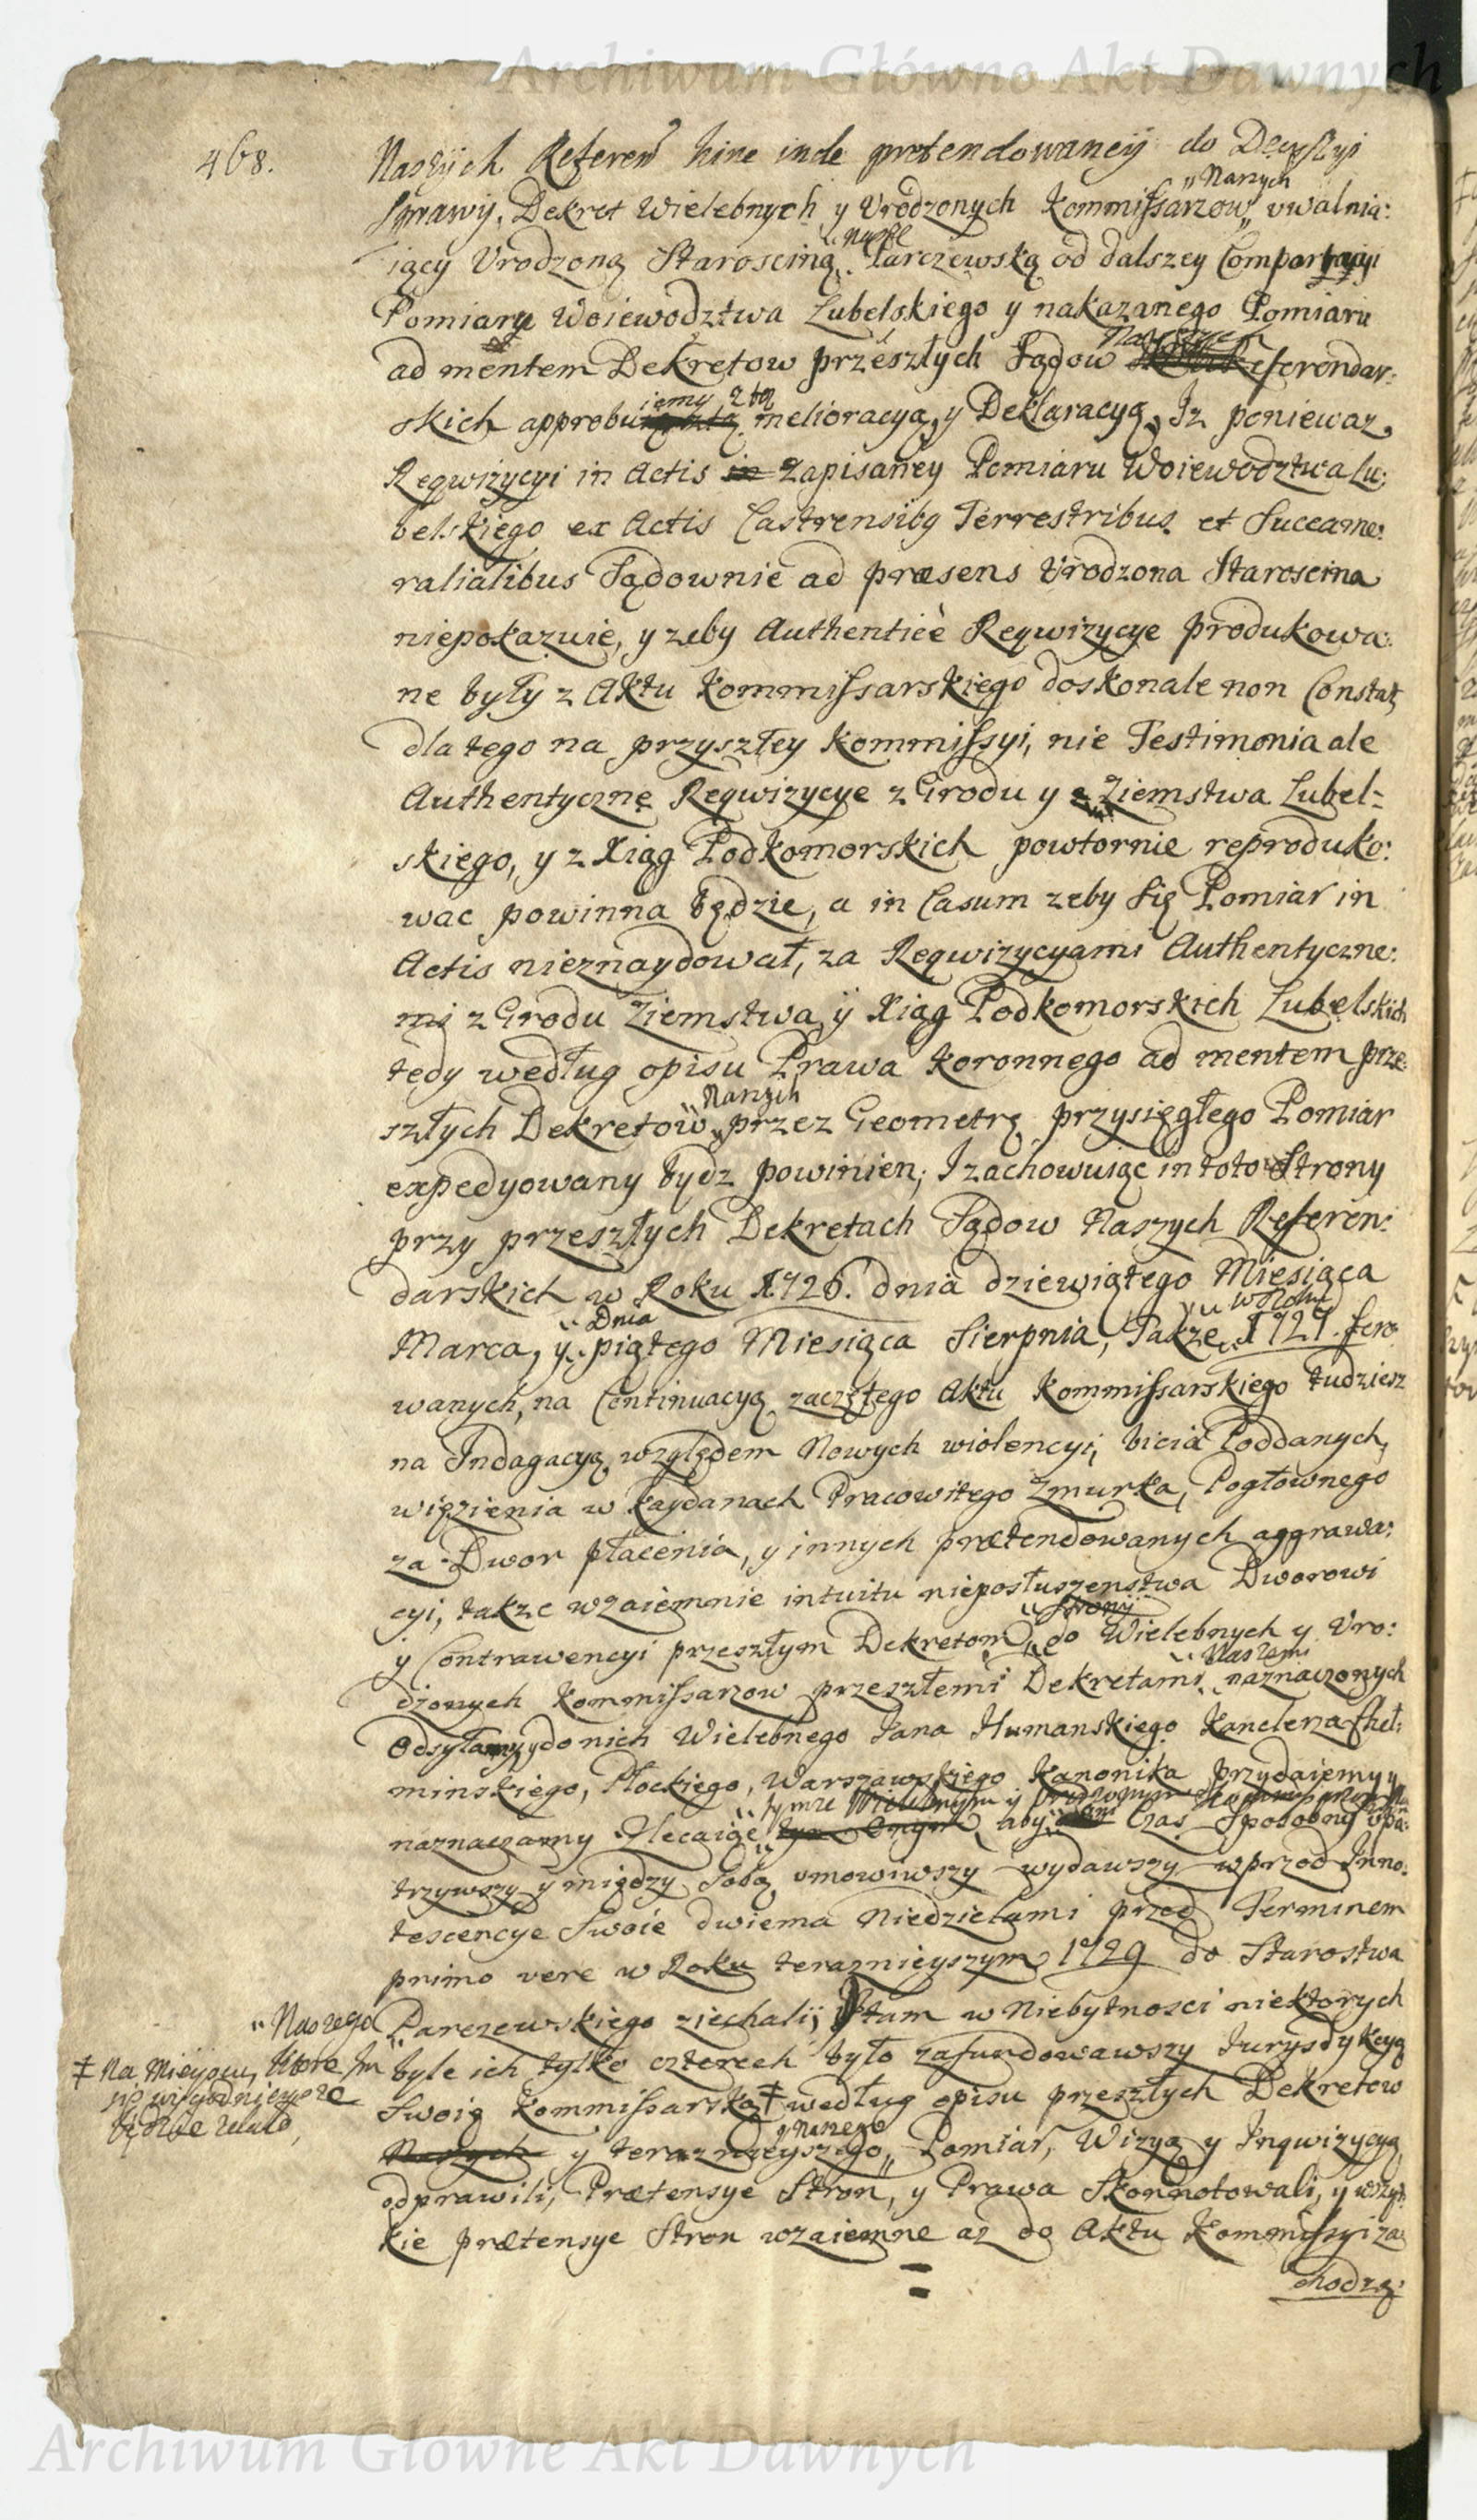 Archiwum Główne Akt Dawnych
468.
Naszych Referen hinc inde pretendowaneij do Decyzyi
"Naszych
Sprawij, Dekret Wielebnych y Urodzonych Kommissarzow" uwalnia:
iący Urodzoną Staroscinę Parczewską od dalszey Comportacyi
Pomiary Woiewodztwa Lubelskiego y nakazanego Pomiaru
ad mentem Dekretow przeszłych Sądow Naszych Referendar:
iemy z tą
skich approbu melioracyą, y Deklaracyą, Iz poniewaz
Reqwizycyi in Actis in Zapisaney Pomiaru Woiewodztwa Lu:
belskiego ex Actis Castrensibq Terrestribus et Succame:
ralialibus Sądownie ad præsens Urodzona Staroscina
niepokazuie, y zeby Authenticè Reqwizycye produkowa:
ne były z Aktu Kommissarskiego doskonale non Constat,
dla tego na przyszłey Kommissyi, nie Testimonia ale
Authentycznę Reqwizycye z Grodu y z Ziemstwa Lubel=
skiego, y z Xiąg Podkomorskich powtornie reproduko:
wac powinna będzie, a in Casum zeby się Pomiar in
Actis nieznaydował, za Reqwizycyami Authentyczne:
mi z Grodu Ziemstwa ÿ Xiąg Podkomorskich Lubelskich
tedy według opisu Prawa Koronnego ad mentem prze:
"Naszych
szłych Dekretow" przez Geometrę przysięgłego Pomiar
expedyowany bydz powinien; I zachowuiąc in toto Strony
przy przeszłych Dekretach Sądow Naszych Referen:
darskich w Roku 1726. dnia dziewiątego Miesiąca
"Dnia w Roku
Marca, y piątego Miesiąca Sierpnia, Takze 1727. fero
wanych, na Continuacyą zaczętego Aktu Kommissarskiego tudziesz
na Indagacyą względem Nowych wiolencyi, bicia Poddanych,
więzienia w Kaydanach Pracowitego Zmurka, Pogłownego
za Dwor płacenia, y innych prætendowanych aggrawa:
cyi, takze wzaiemnie intuitu nieposłuszenstwa Dworowi
"Strony
y Contrawencyi przeszłym Dekretom, do Wielebnych y Uro:
"Naszemi
dzonych Kommissarzow przeszłemi Dekretami naznaczonych
Odsyłamy, y do nich Wielebnego Jana Humanskiego Kanclerza Cheł:
minskiego, Płockiego, Warszawskiego Kanonika przydaiemy y
"tymze Wielebnym y Urodzonym
naznaczamy Zlecaiąc Onym, aby Czas Sposobny upa:
trzywszy y między Sobą umowiwszy wydawszy wprzod Inno:
tescencye Swoie dwiema Niedzielami przed Terminem
primo vere w Roku teraznieyszym 1729 do Starostwa
"Naszego Parczewskiego ziechali; y tam w Niebytnosci niektorych
byle ich tylko czterech było zafundowawszy Jurysdykcyą
‡ Na Mieyscu, Ktore Im
się wygodnieysze
będzie zdało,
Swoią Kommissarską ‡ według opisu przeszłych Dekretow
y Naszego
Naszych y teraznieyszego" Pomiar, Wizyą y Inqwizycyą
odprawili, Prætensye Stron, y Prawa Skonnotowali, y wszyt:
kie prætensye Stron wzaiemne az do Aktu Kommissyi za:
chodzą:
Archiwum Główne Akt Dawnych